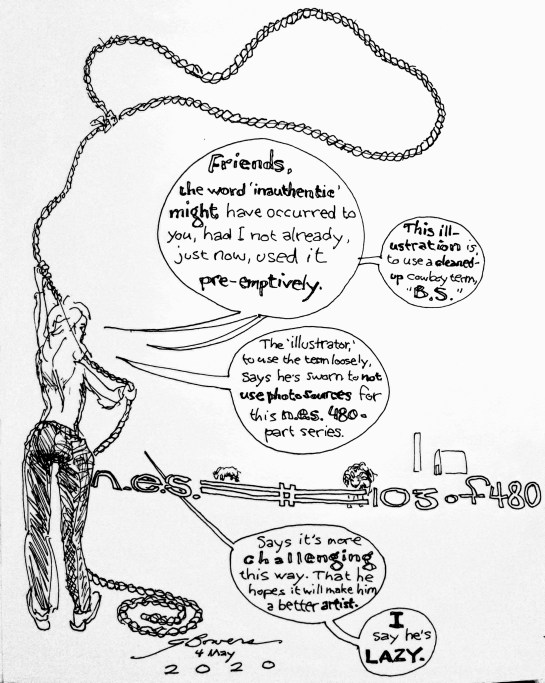 Friends,
the word 'inauthentic'
might have occurred to
you, had I not already,
just now, used it
pre-emptively.
This ill-
ustration is,
to use a cleaned-
up cowboy term,
"B.S."
The 'illustrator,'
to use the term loosely,
says he's sworn to not
use photo sources for
this n.e.s. 480-
part series.
n.e.s. # 103 of 480
Says it's more
challenging
this way. That he
hopes it will make him
a better artist.
I
say he's
LAZY.
G Bowers
4 May
2020